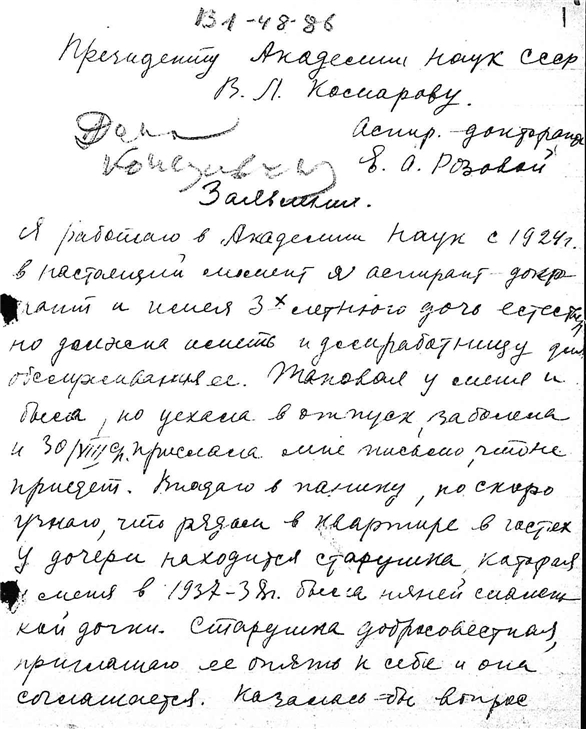 В1-48-86
1
Президенту Академии наук СССР
В. Л. Комарову.
Аспир.-докторанта
Е. А. Розовой
Заявление.
Я работаю в Академии Наук с 1924 г.
в настоящий момент я аспирант-докто
рант и имея 3х летнюю дочь естествен
но должна иметь и домработницу для
обслуживания ее. Таковая у меня и
была, но уехала в отпуск, заболела
и 30/VIII с/г. прислала мне письмо, что не
приедет. Впадаю в панику, но скоро
узнаю, что рядом в квартире в гостях
у дочери находится старушка, которая
у меня в 1937-38 г. была няней малень
кой дочки. Старушка добросовестная,
приглашаю ее опять к себе и она
соглашается. Казалось-бы вопрос